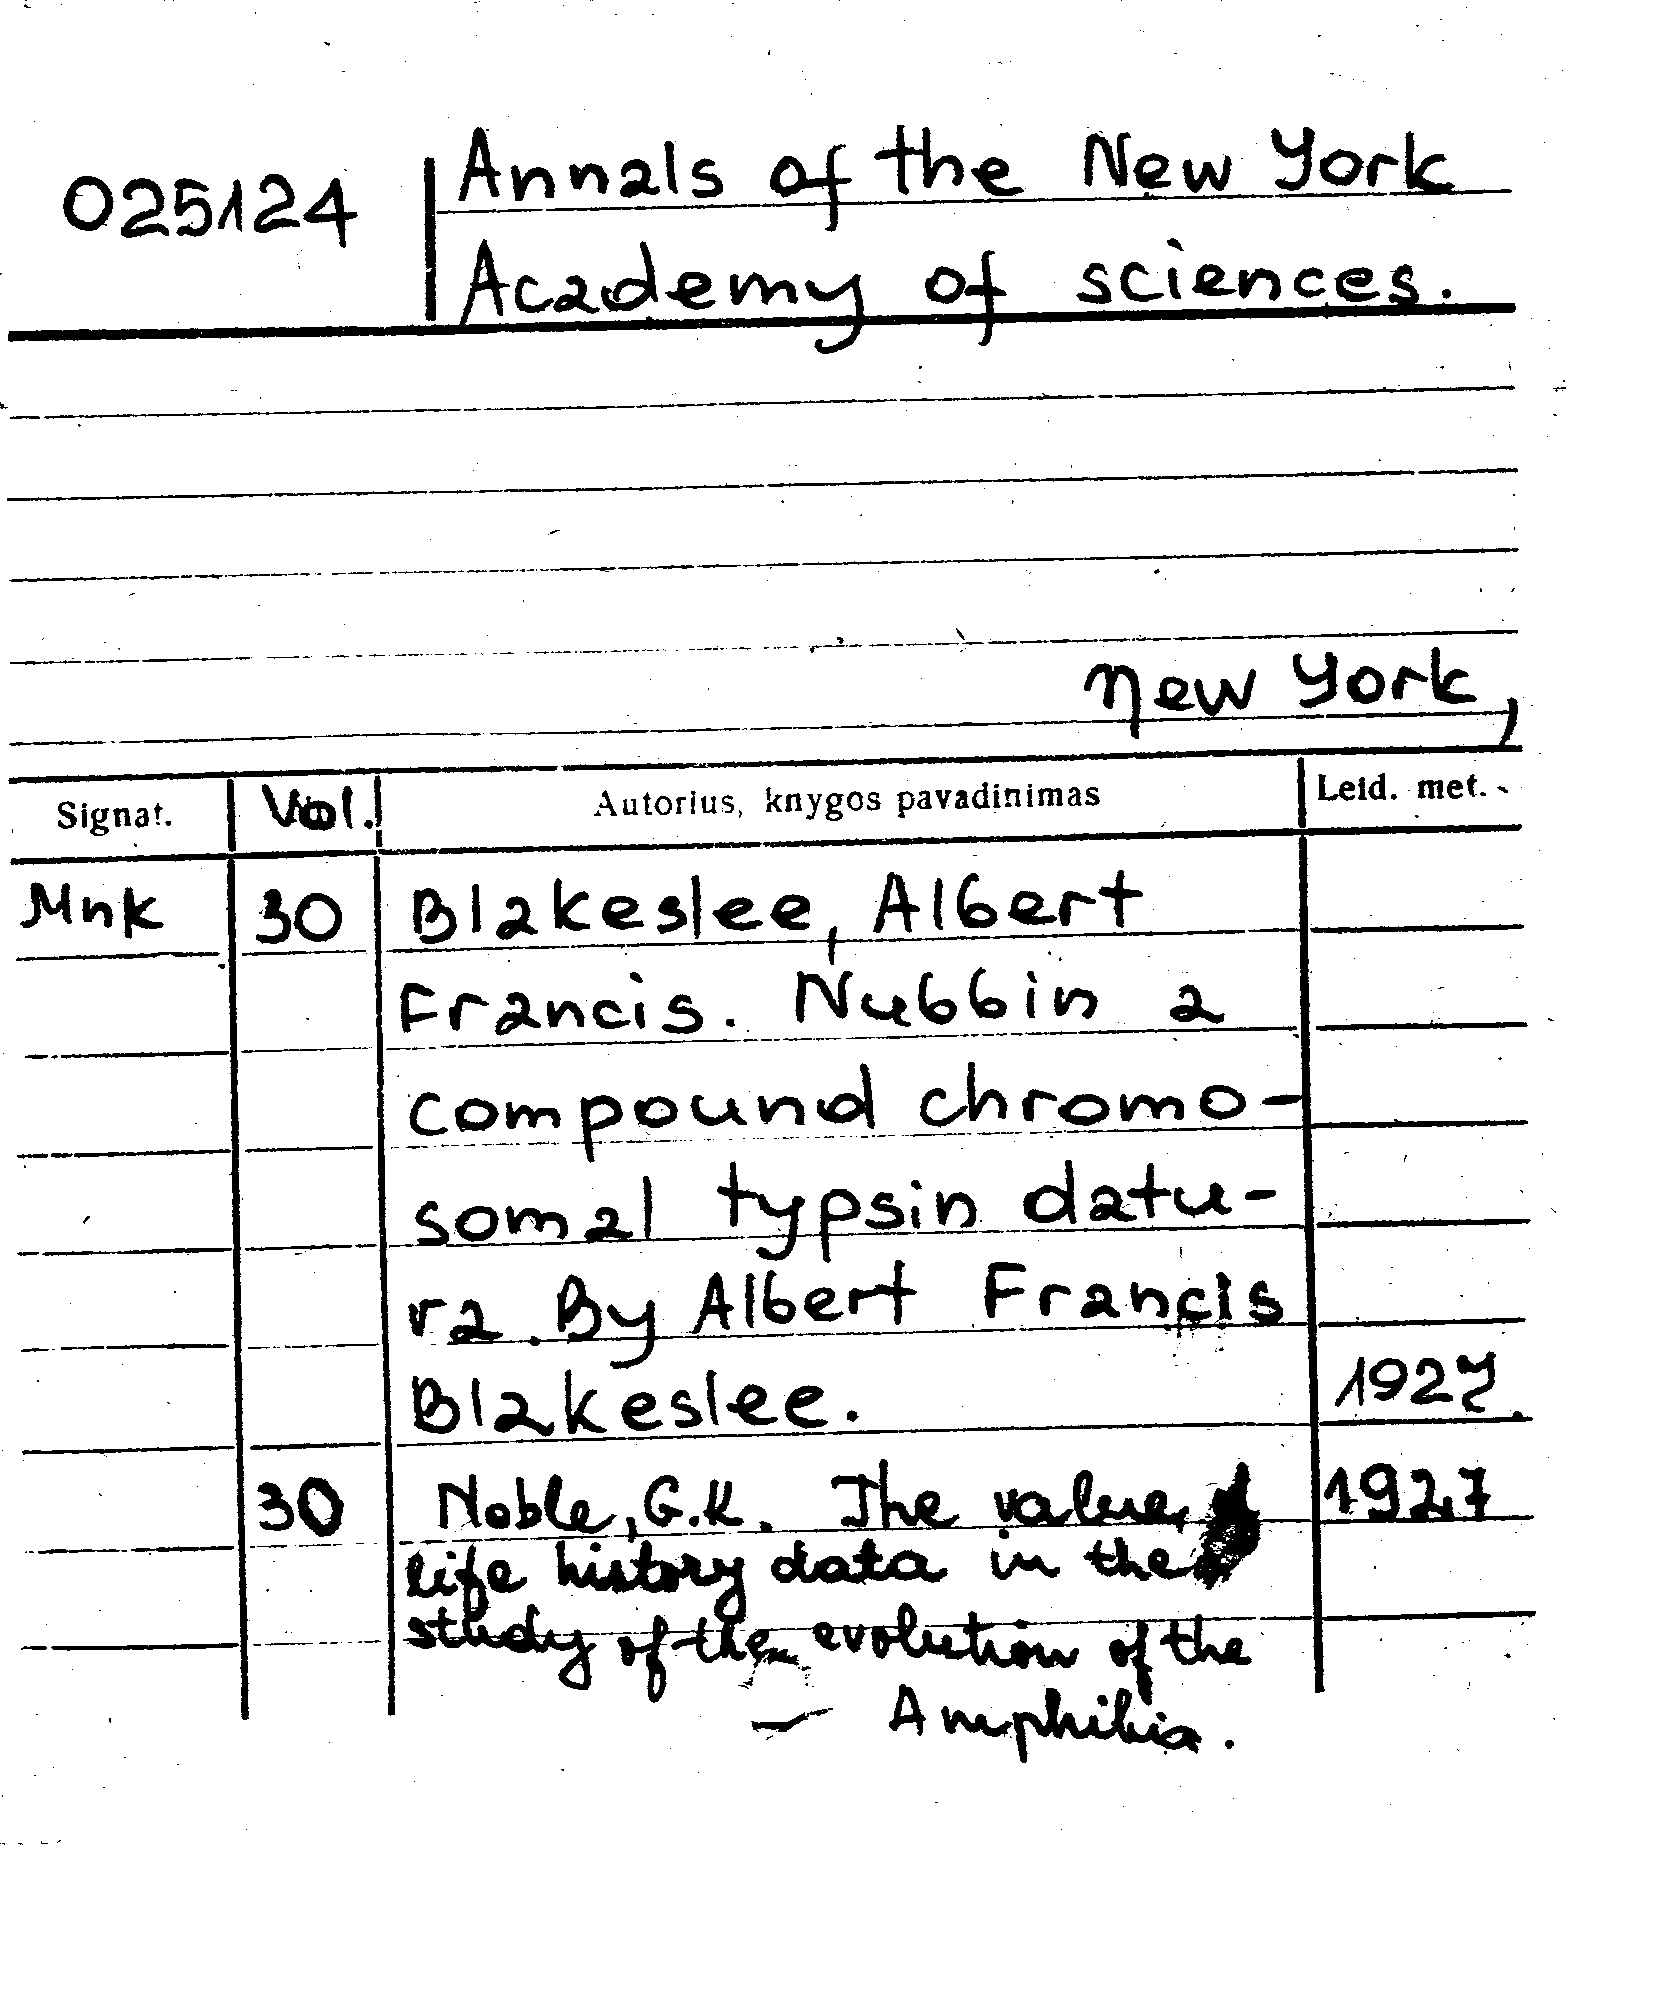 025124 Annals of the New York
Academy of sciences.
New York,
Signat. Vol. Autorius, knygos pavadinimas Leid. met.
Mnk 30 Blakeslee, Albert
Francis. Nubbin a
compound chromo-
somal typsin datu-
ra. By Albert Francis
Blakeslee. 1927.
30 Noble, G.K. The value 1927
life history data in the
study of the evolution of the
— Amphibia.